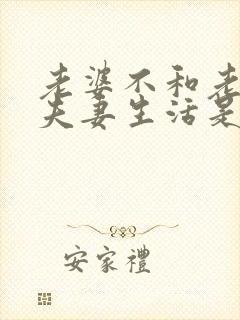 老婆不和老
夫妻生活是
安家禮